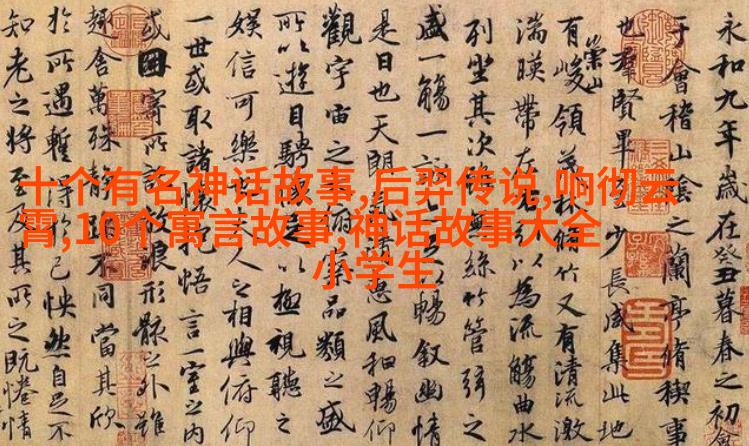 十个有名神话故事,后羿传说,响彻云
霄,10个寓言故事,神话故事大全
小学生
永和九年歲在癸丑暮春之初會
于會稽山陰之蘭亭脩稧事
也羣賢畢少長咸集此地
有崇山峻領茂林脩竹又有清流激
湍暎帶左右以為流觴曲水
列坐其次雖無絲竹管弦之
盛一觴一詠足以暢叙幽情
是日也天朗惠風和暢仰
觀宇宙之俯察品類之盛
所以遊目騁懷足以極視聽之
娛信可樂也夫人之相與俯仰
一世或取諸懷抱悟言一室之內
或因寄所託放浪形骸之外雖
趣舍萬殊靜躁不同當其欣
於所遇暫得於己怏然自足不
知老之將至及其所之既惓情